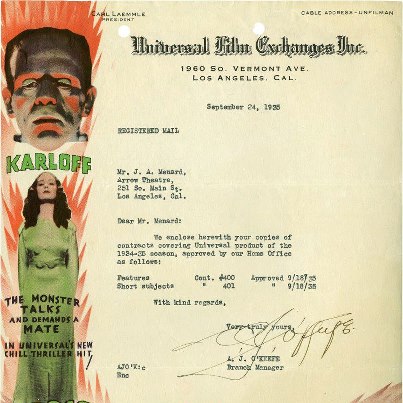 CARL LAEMMLE
PRESIDENT
CABLE ADDRESS-UNFILMAN
Universal Film Exchanges Inc.
1960 So. Vermont Ave.
Los Angeles, Cal.
September 24, 1935
REGISTERED MAIL
KARLOFF
Mr. J. A. Menard,
Arrow Theatre,
251 So. Main St.
Los Angeles, Cal.
Dear Mr. Menard:
We enclose herewith your copies of
contracts covering Universal product of the
1934-35 season, approved by our Home Office
as follows:
Features Cont. #400 Approved 9/18/35
Short subjects " 401 " 9/18/35
With kind regards,
THE MONSTER
TALKS
AND DEMANDS A
MATE
IN UNIVERSAL'S NEW
CHILL THRILLER HIT!
Very truly yours,
A. J. O'KEEFE
Branch Manager
AJO'K:c
Enc